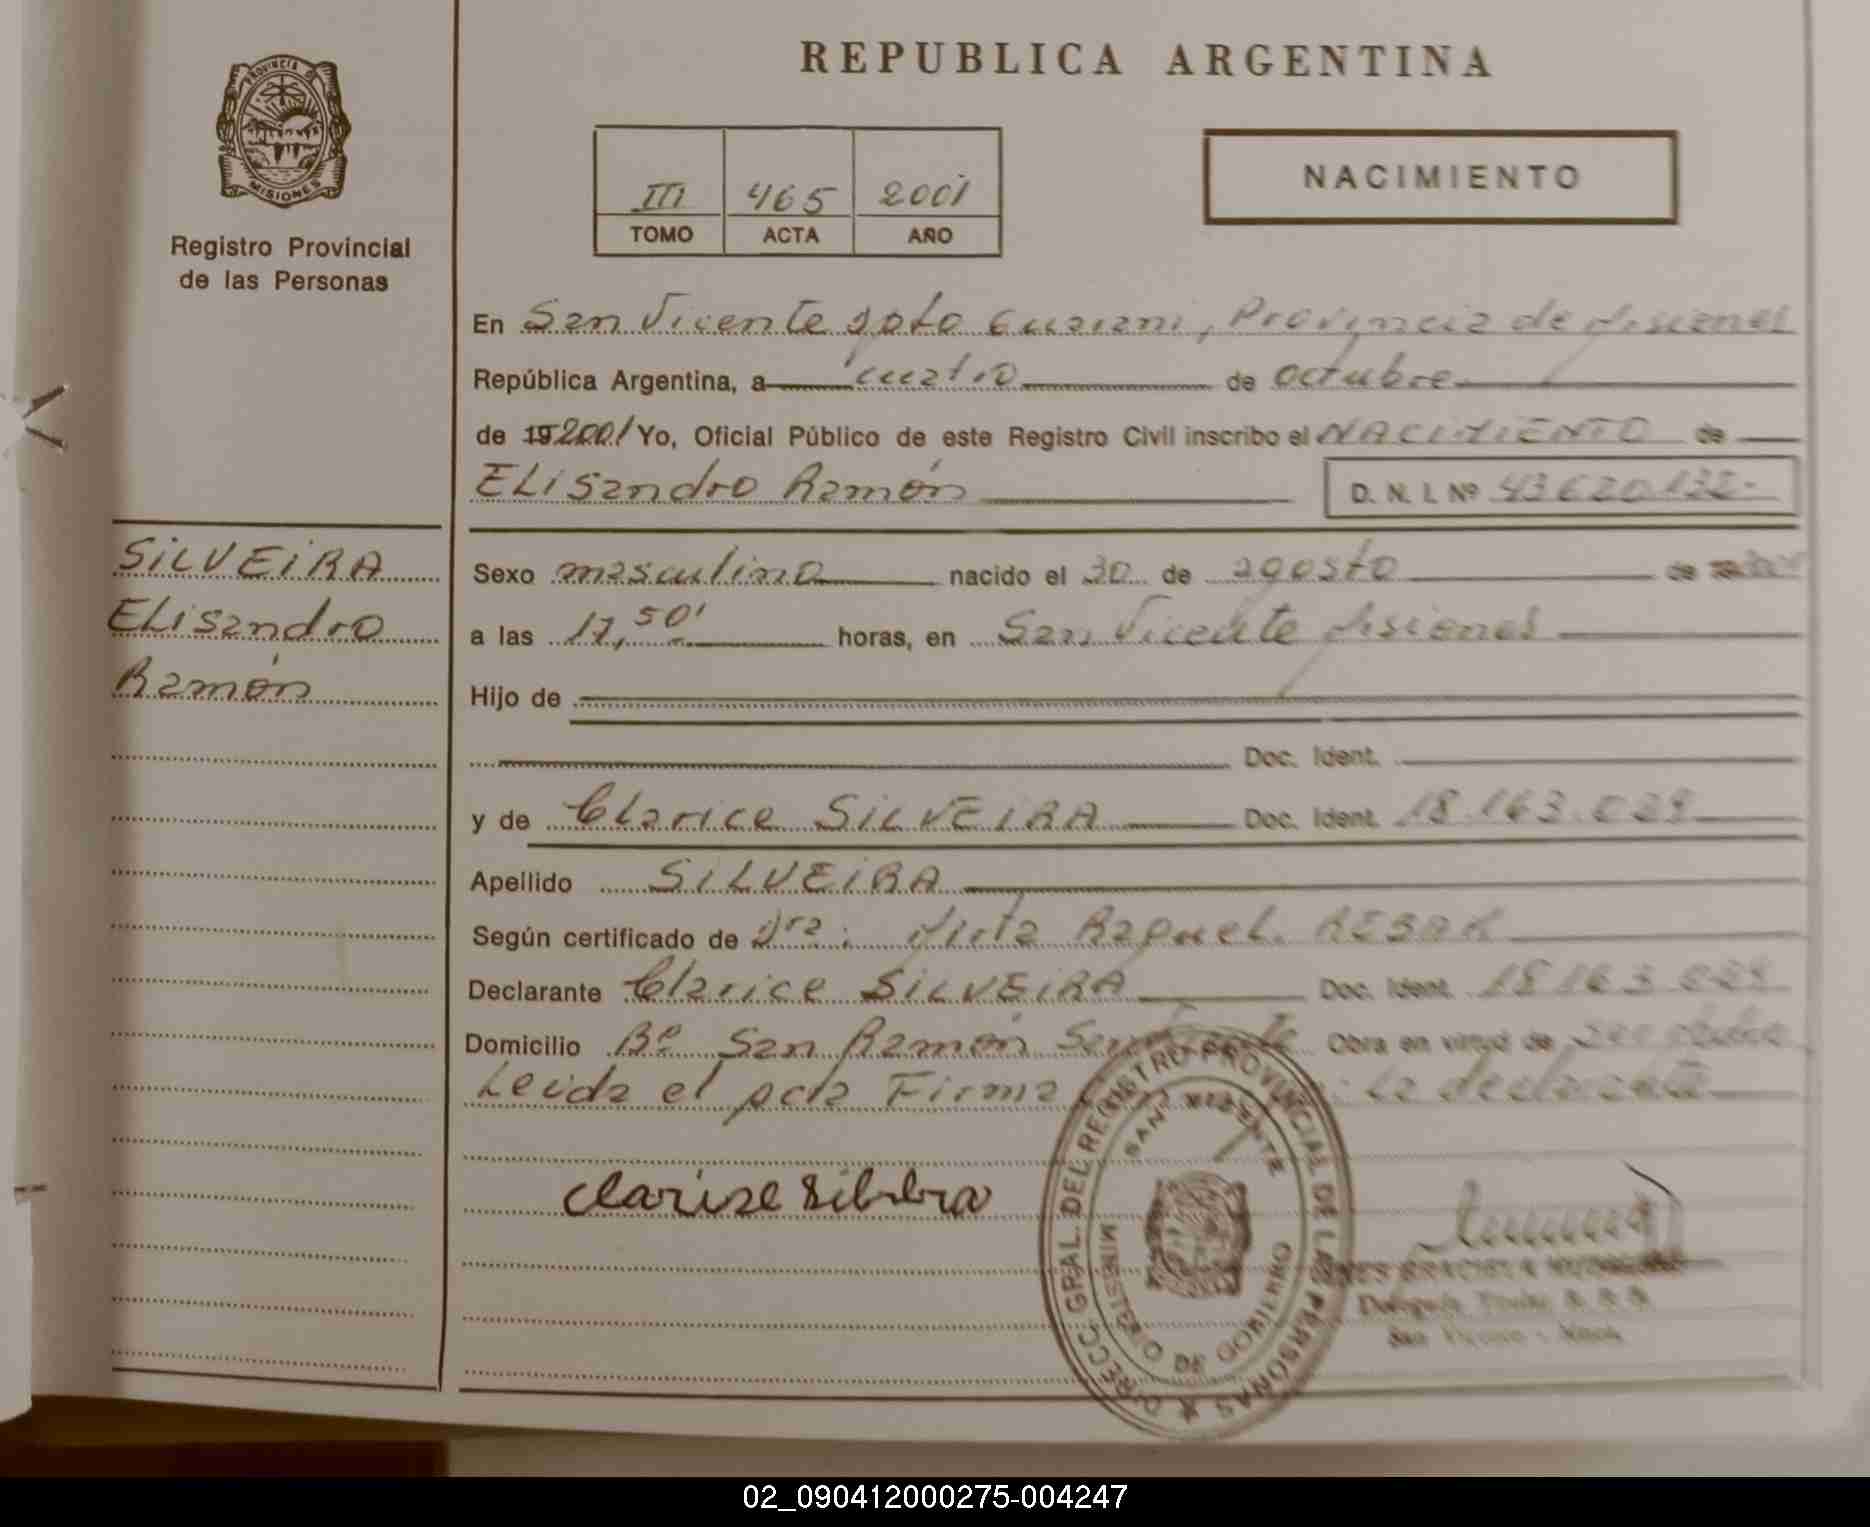 PROVINCIA DE
MISIONES
Registro Provincial
de las Personas
REPUBLICA ARGENTINA
III 465 2001
TOMO ACTA AÑO
NACIMIENTO
En San Vicente Dpto Guarani, Provincia de Misiones
República Argentina, a cuatro de octubre
de 19 2001 Yo, Oficial Público de este Registro Civil inscribo el NACIMIENTO de
ELisandro Ramón D. N. I. Nº 43620132.-
SILVEIRA
ELisandro
Ramón
Sexo masculino nacido el 30 de agosto de
a las 17,50' horas, en San Vicente Misiones
Hijo de
Doc. Ident.
y de Clarice SILVEIRA Doc. Ident. 18.163.039
Apellido SILVEIRA
Según certificado de Dra: Mirta Raquel
Declarante Clarice SILVEIRA Doc. Ident. 18163039
Domicilio Bº San Ramón San Vicente Obra en virtud de
Leida el acta Firma la declarante
clarise silbera
DIRECC. GRAL. DEL REGISTRO PROVINCIAL DE LAS PERSONAS
SAN VICENTE
MINISTERIO DE GOBIERNO
GRACIELA
Delegada Titular
San Vicente - Mnes.
02_090412000275-004247